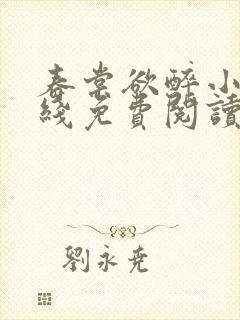 春棠欲醉小
綫免費閱讀
劉永堯